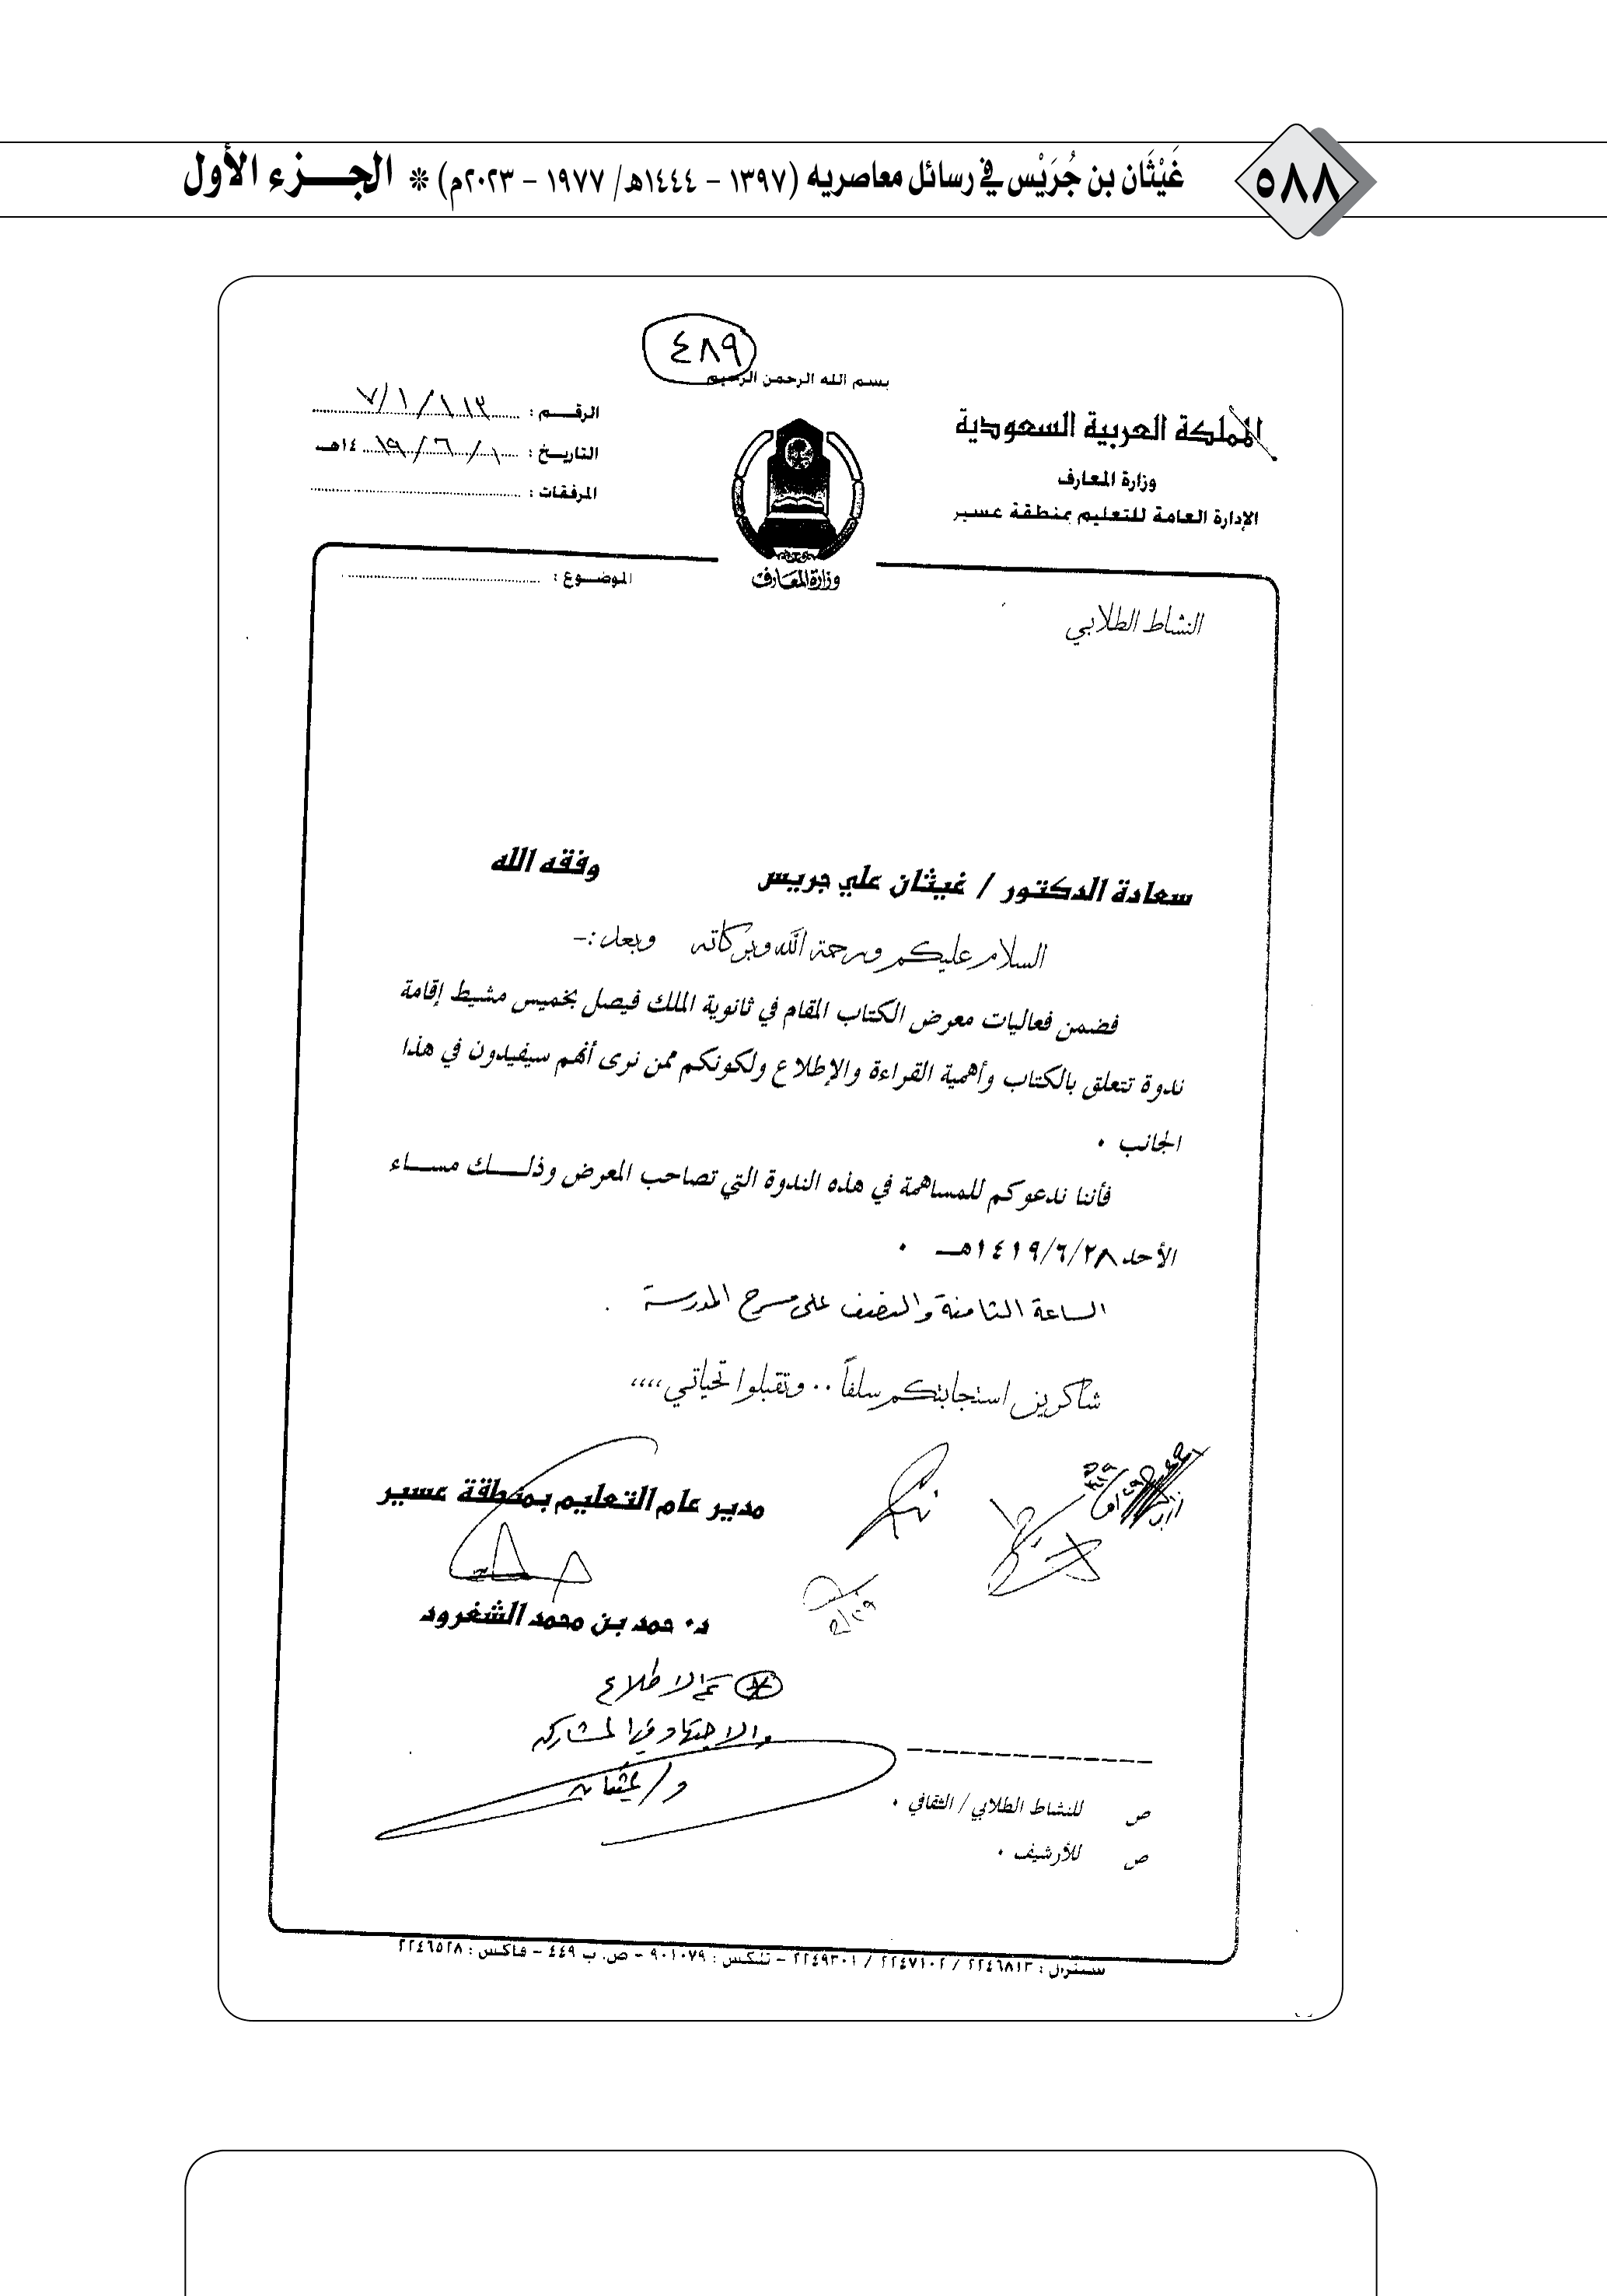 ٥٨٨
غَيْثَان بن جُرَيْس في رسائل معاصريه (١٣٩٧ - ١٤٤٤هـ/ ١٩٧٧ - ٢٠٢٣م) * الجــزء الأول
٤٨٩
بسم الله الرحمن الرحيم
المملكة العربية السعودية
وزارة المعارف
الإدارة العامة للتعليم بمنطقة عسير
الرقــم :
التاريـخ : ١/ ٦/ ١٩ ١٤هـ
المرفقات :
وزارة المعارف
الموضــوع :
النشاط الطلابي
سعادة الدكتور / غيثان علي جريس وفقه الله
السلام عليكم ورحمة الله وبركاته وبعد :-
فضمن فعاليات معرض الكتاب المقام في ثانوية الملك فيصل بخميس مشيط إقامة
ندوة تتعلق بالكتاب وأهمية القراءة والإطلاع ولكونكم ممن نرى أنهم سيفيدون في هذا
الجانب .
فأننا ندعوكم للمساهمة في هذه الندوة التي تصاحب المعرض وذلــك مســاء
الأحد ١٤١٩/٦/٢٨هـ .
الساعة الثامنة والنصف على مسرح المدرسة .
شاكرين استجابتكم سلفاً .. وتقبلوا تحياتي ،،،،
مدير عام التعليم بمنطقة عسير
د. حمد بن محمد الشغرود
تم الاطلاع
والاجتهاد في المشاركه
د/ غيثان
ص للنشاط الطلابي / الثقافي .
ص للأرشيف .
سنترال : ٢٢٤٦٨١٣ / ٢٢٤٧١٠٢ / ٢٢٤٩٣٠١ – تلكس : ٩٠١٠٧٩ – ص. ب ٤٤٩ – فاكس : ٢٢٤٦٥٢٨